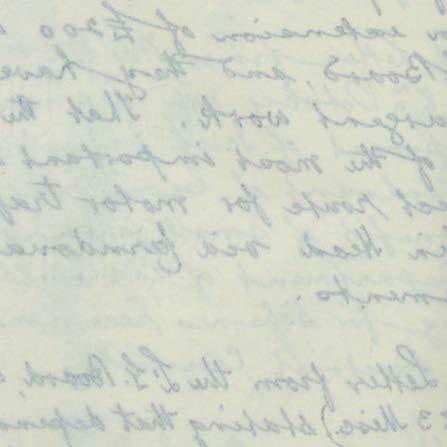 extension of £200
Board, and they have
urgent work. That the
of the most important
ect route for motor traf
in Head via Carndona
ments.
Letter from the L.G. Board,
3 Misc.) stating that depend